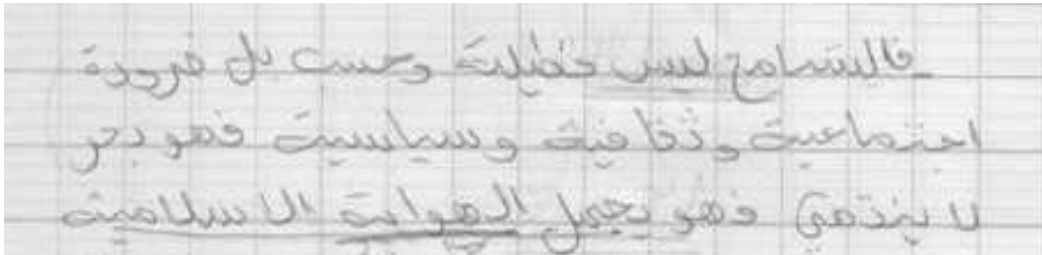 فالتسامح ليس فضيلة وحسب بل ضرورة
اجتماعية وثقافية وسياسية فهو بحر
لا ينتهي فهو يجعل الهوامة الاسلامية